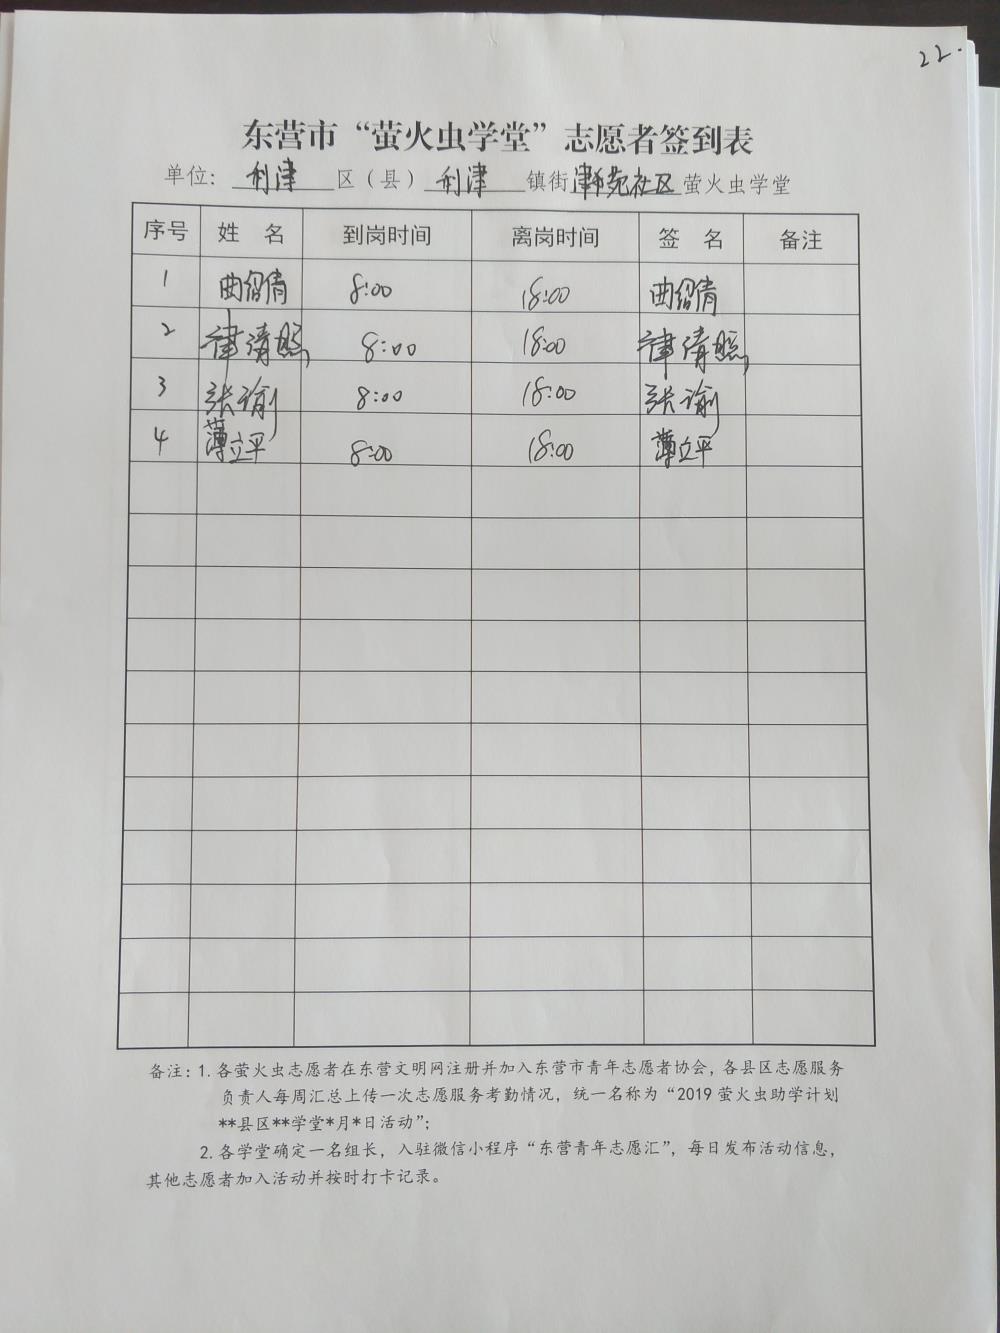 22.
东营市“萤火虫学堂”志愿者签到表
单位：利津区（县）利津镇街津苑社区萤火虫学堂
序号 姓名 到岗时间 离岗时间 签名 备注
1 曲绍倩 8:00 18:00 曲绍倩
2 津清照 8:00 18:00 津清照
3 张谕 8:00 18:00 张谕
4 薄立平 8:00 18:00 薄立平
备注：1. 各萤火虫志愿者在东营文明网注册并加入东营市青年志愿者协会，各县区志愿服务
负责人每周汇总上传一次志愿服务考勤情况，统一名称为“2019 萤火虫助学计划
**县区**学堂*月*日活动”；
2. 各学堂确定一名组长，入驻微信小程序“东营青年志愿汇”，每日发布活动信息，
其他志愿者加入活动并按时打卡记录。